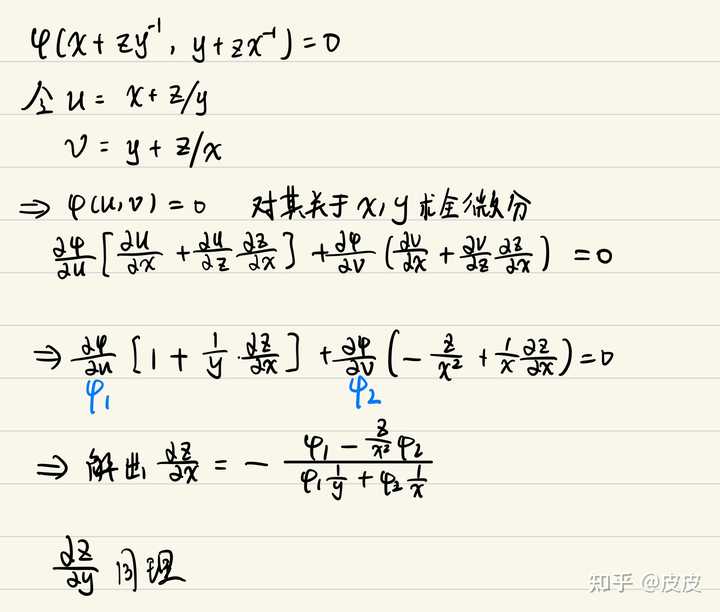 φ(x+zy⁻¹, y+zx⁻¹)=0
令 u = x+z/y
v = y+z/x
⇒ φ(u,v)=0 对其关于x,y求全微分
∂φ/∂u [∂u/∂x + ∂u/∂z ∂z/∂x] + ∂φ/∂v (∂v/∂x + ∂v/∂z ∂z/∂x) = 0
⇒ ∂φ/∂u [1 + 1/y · ∂z/∂x] + ∂φ/∂v (- z/x² + 1/x ∂z/∂x) = 0
φ₁ φ₂
⇒ 解出 ∂z/∂x = - (φ₁ - z/x² φ₂)/(φ₁ 1/y + φ₂ 1/x)
∂z/∂y 同理
知乎 @皮皮